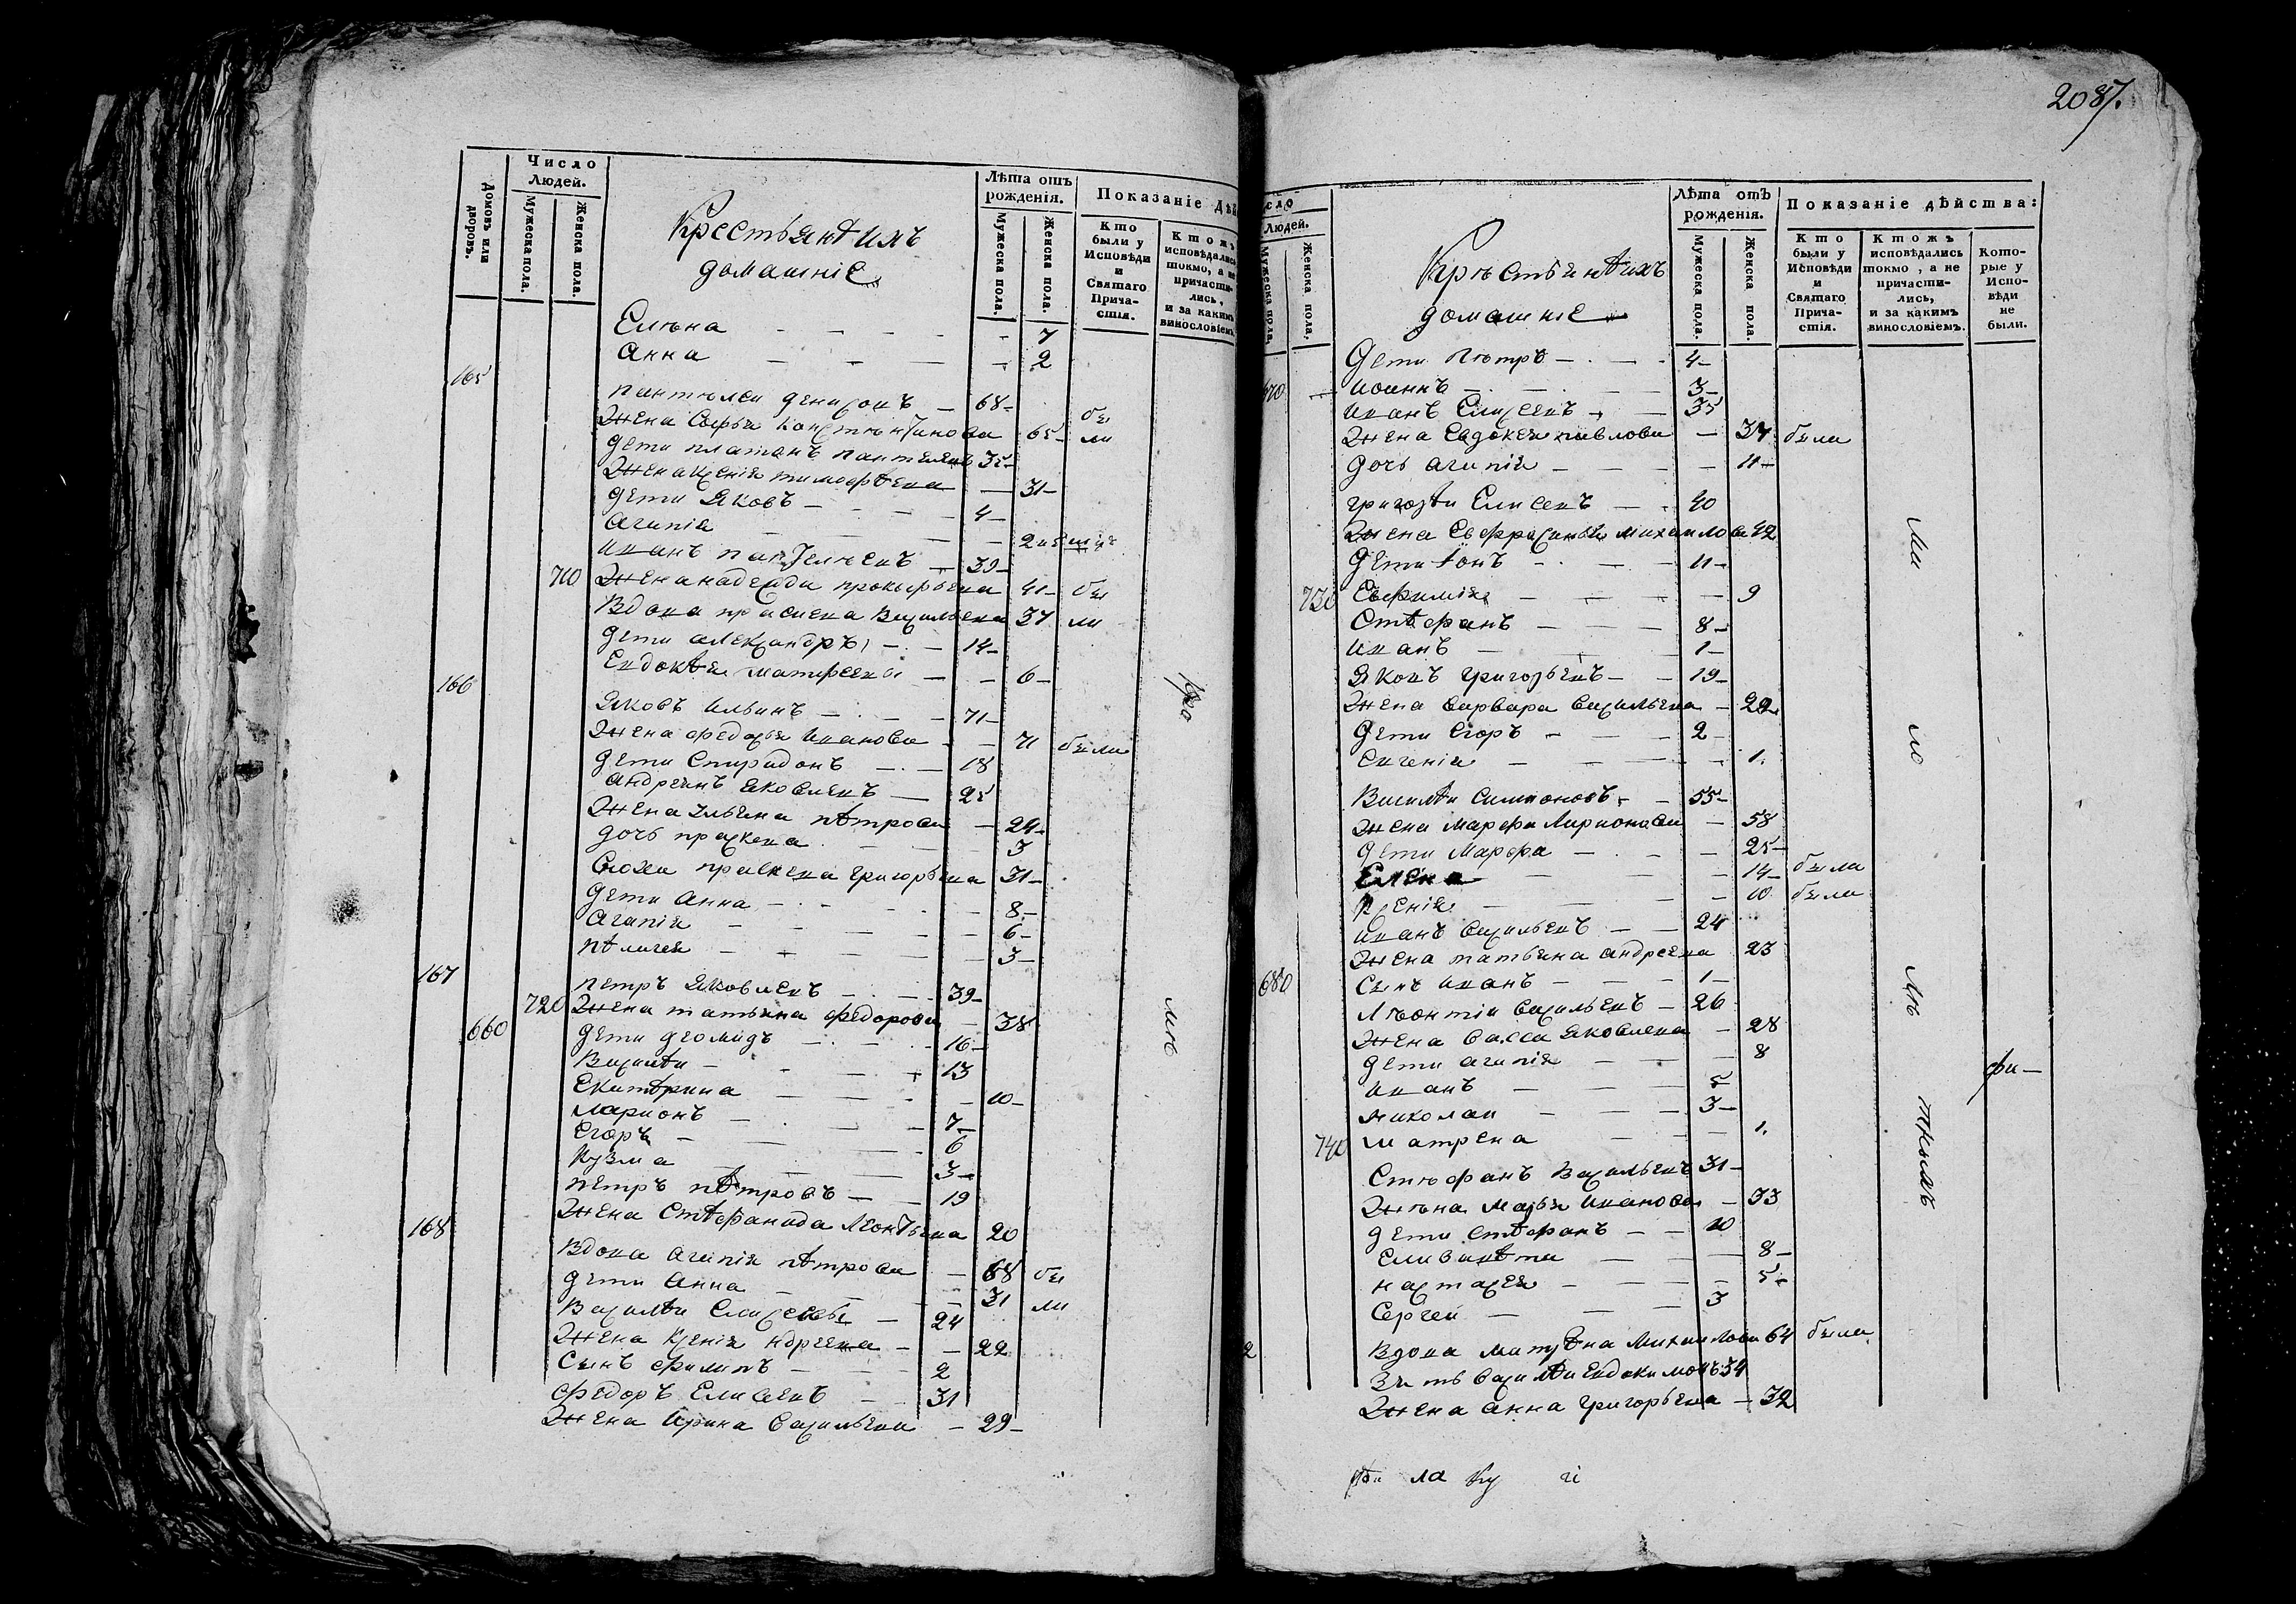 2087.
Домовъ или дворовъ.
Число Людей.
Мужеска пола.
Женска пола.
Крестьянѣ ихъ
домашніе
Лѣта отъ рожденія.
Мужеска пола.
Женска пола.
Показаніе дѣй
Кто были у Исповѣди и Святаго Причастія.
Ктожъ исповѣдались токмо, а не причастились, и за какимъ винословіемъ.
Елена - - 7
Анна — — — 2
165
Пантелеи Денисовъ — 68
Жена Софья Константинова 65 бы
Дети Платонъ Пантелеевъ 35 ли
Жена Ксенія Тимофѣева — 31
Дети Яковъ — 4
Агапія — 2
Иванъ Пантелеевъ — 39
710 Жена Надежда Прокофьева 41 бы
Вдова Прасковья Васильева 37 ли
Дети Александръ — 14
Евдокѣя Матфеева — 6
166
Яковъ Ильинъ — 71
Жена Федосья Иванова — 71 были
Дети Спиридонъ — 18
Андреянъ Яковлевъ — 25
Жена Ульяна Пѣтрова — 24
Дочь Праскева — 3
Сноха Праскева Григорьева 31
Дети Анна — 8
Агапія — 6
Пѣлагея — 3
167
Петръ Яковлевъ — 39
720 Жена Татьяна Федорова — 38
660 Дети Деомидъ — 16
Василѣи — 13
Екатѣрина — 10
Ларионъ — 7
Егоръ — 6
Кузма — 3
Петръ Пѣтровъ — 19
Жена Стѣфанида Леонтьева 20
168
Вдова Агапія Пѣтрова — 68 бы
Дети Анна — 31 ли
Василѣи Елисеевъ — 24
Жена Ксенія Ндреева — 22
Сынъ Филипъ — 2
Федоръ Елисеевъ — 31
Жена Ирина Васильева — 29
сло Людей.
Мужеска пола.
Женска пола.
Крестьянѣ ихъ
домашніе
Лѣта отъ рожденія.
Мужеска пола.
Женска пола.
Показаніе дѣйства:
Кто были у Исповѣди и Святаго Причастія.
Ктожъ исповѣдались токмо, а не причастились, и за какимъ винословіемъ.
Которые у Исповѣди не были.
Дети Петръ — 4
670 Иоаннъ — 3
Иванъ Елисеевъ — 35
Жена Евдокея Павлова — 37 были
Дочь Агапія — 11
Григорѣи Елисеевъ — 40
Жена Евфросинья Михаилова 42
Дети Іонъ — 11
730 Евфимія — 9
Стѣфанъ — 8
Иванъ — 1
Яковъ Григорьевъ — 19
Жена Варвара Васильева — 20
Дети Егоръ — 2
Евгенія — 1
Василѣи Симионовъ — 55
Жена Марфа Ларионова — 58
Дети Марфа — 25
Елена — 14 были
Ксенія — 10 были
Иванъ Васильевъ — 24
Жена Татьяна Андреева 23
680 Сынъ Иванъ — 1
Леонтіи Васильевъ — 26
Жена Васса Яковлева — 28
Дети Агапія — 8
Иванъ — 5
Николаи — 3
740 Матрена — 1
Стефанъ Васильевъ 31
Жена Марья Иванова — 33
Дети Стѣфанъ — 10
Елизавѣта — 8
Настасея — 5
Сергей — 3
Вдова Матрѣна Михаилова 64 была
Зять Василѣи Евдокимовъ 34
Жена Анна Григорьева — 32